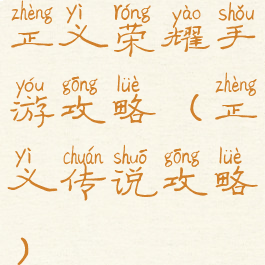 zhèng yì róng yào shǒu
正义荣耀手
yóu gōng lüè zhèng
游攻略（正
yì chuán shuō gōng lüè
义传说攻略
）